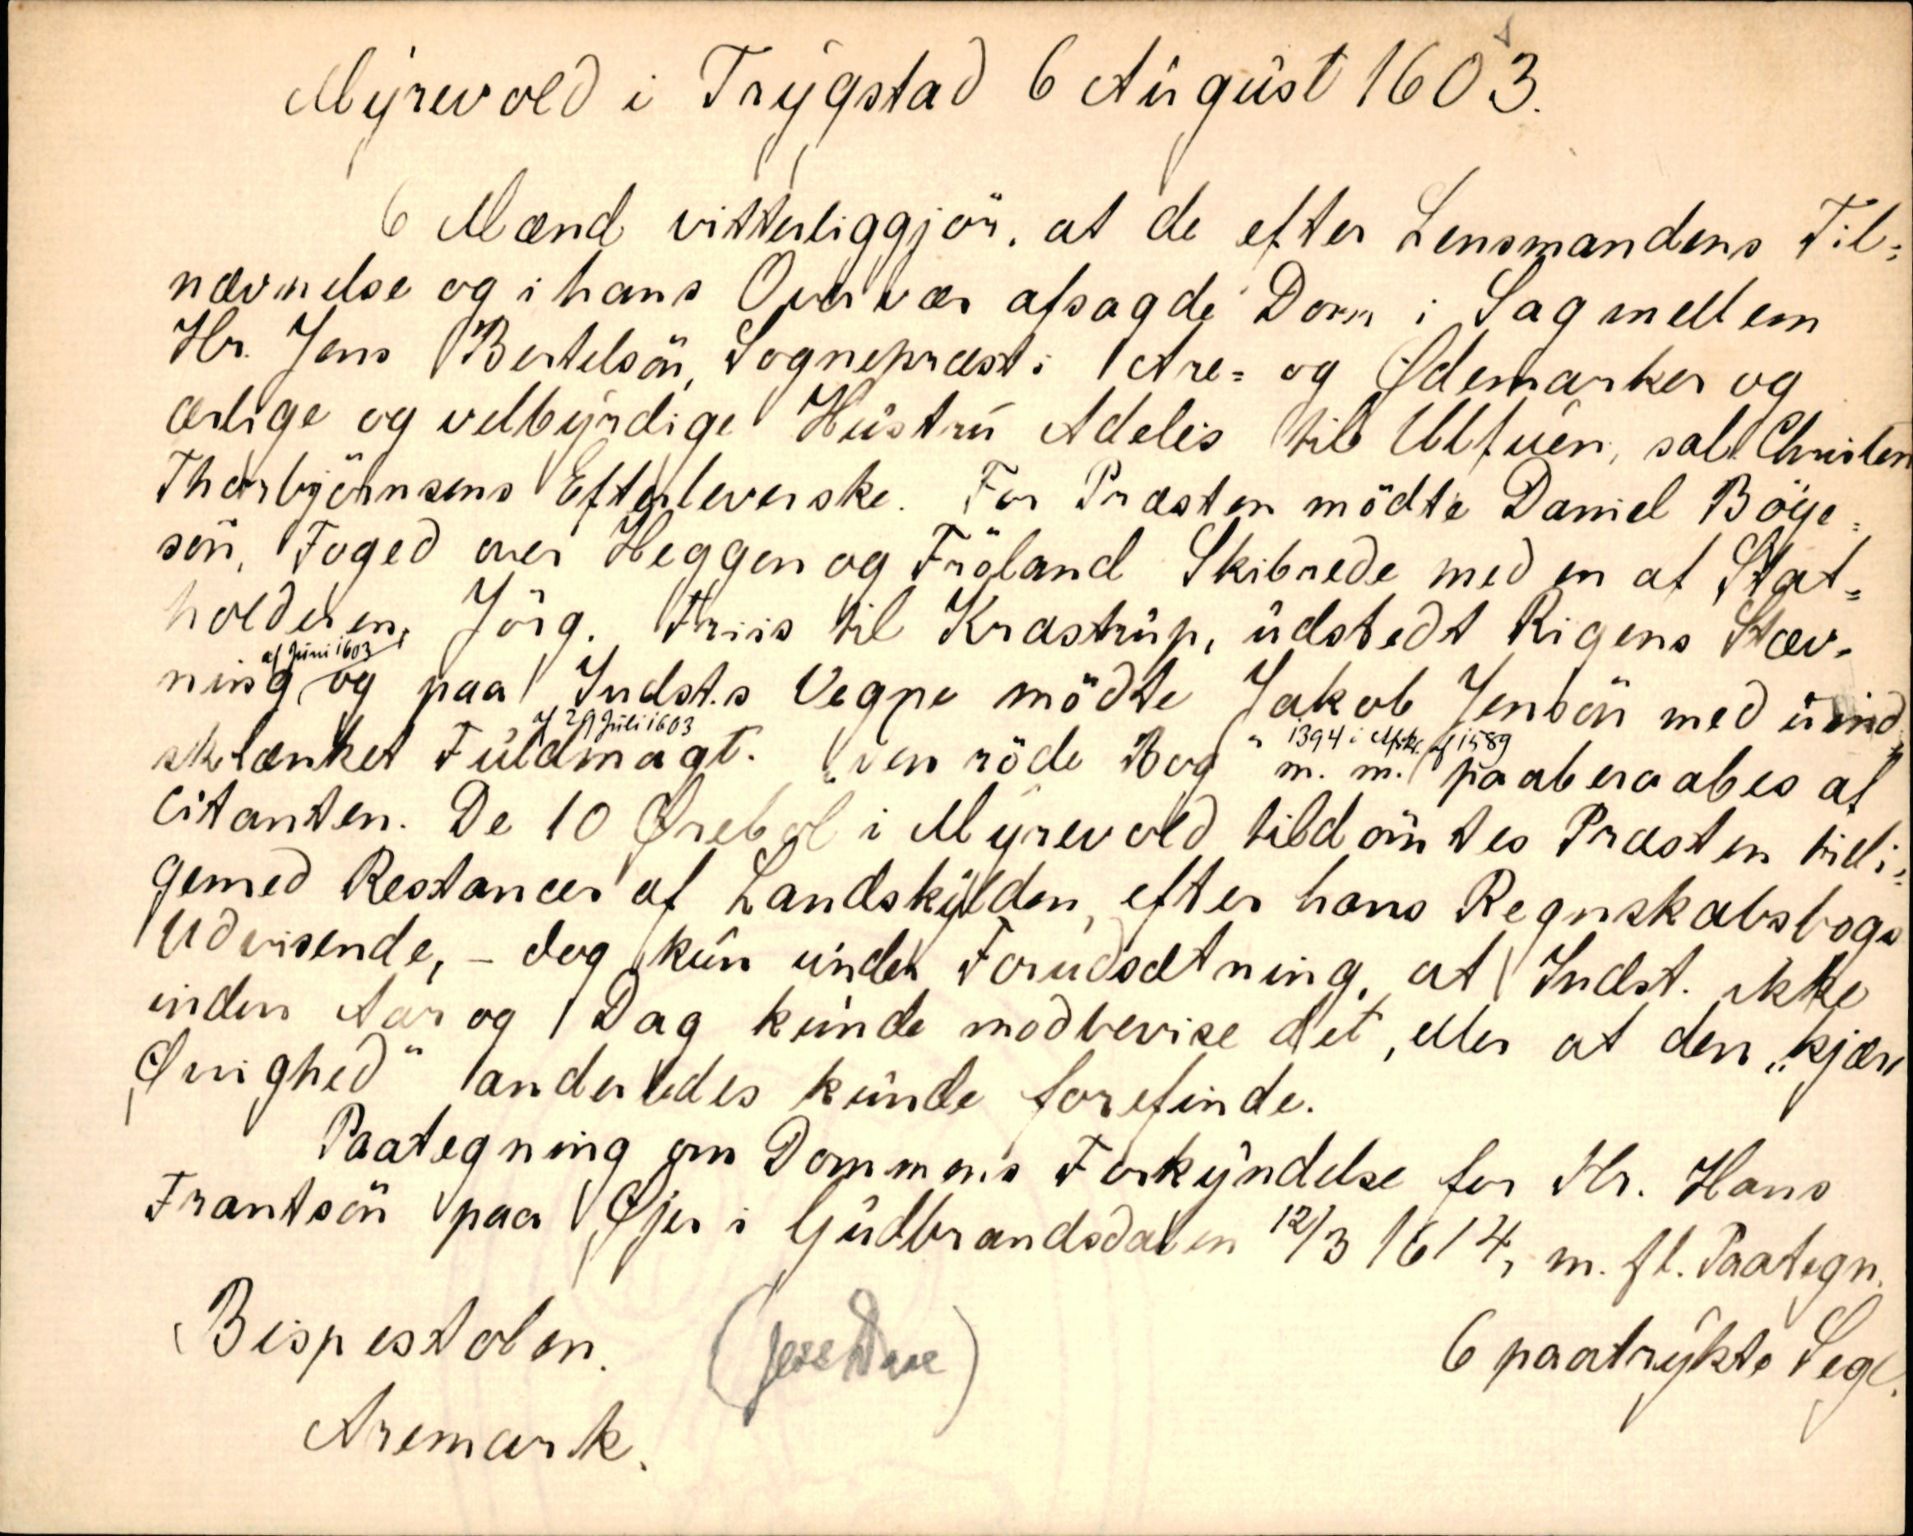 Myrevold i Trygstad 6 August 1603.
6 Mænd vitterliggjör, at de efter Lensmandens Til=
nævnelse og i hans Overvær afsagde Dom i Sag mellem
Hr. Jens Bertelsön, Sognepræst i Are= og Ødemarker og
ærlige og velbyrdige Hustru Adelis til Ulfuen, sal. Christen
Thorbjörnsens Efterleverske. For Præsten mödte Daniel Böye=
sön, Foged over Heggen og Fröland Skibrede med en af Stat=
holderen, Jörg. Friis til Krastrup, udstedt Rigens Stæv=
af Juni 1603
ning og paa Indst.s Vegne mödte Jakob Jensön med uind
af 29 Juli 1603
sklænket Fuldmagt. "Den röde Bog" m. m. paaberaabes af
1394 i Afskr. af 1589
Citanten. De 10 Øreból i Myrevold tildömtes Præsten tilli=
gemed Restancer af Landskylden, efter hans Regnskabsbogs
Udvisende, – dog kun under Forudsætning, at Indst. ikke
inden Aar og Dag kunde modbevise det, eller at den "kjære
Øvrighed" anderledes kunde forefinde.
Paategning om Dommens Forkyndelse for Hr. Hans
Frantsön paa Øjer i Gudbrandsdalen 12/3 1614, m. fl. Paategn.
Bispestolen.
6 paatrykte Segl.
Aremark.